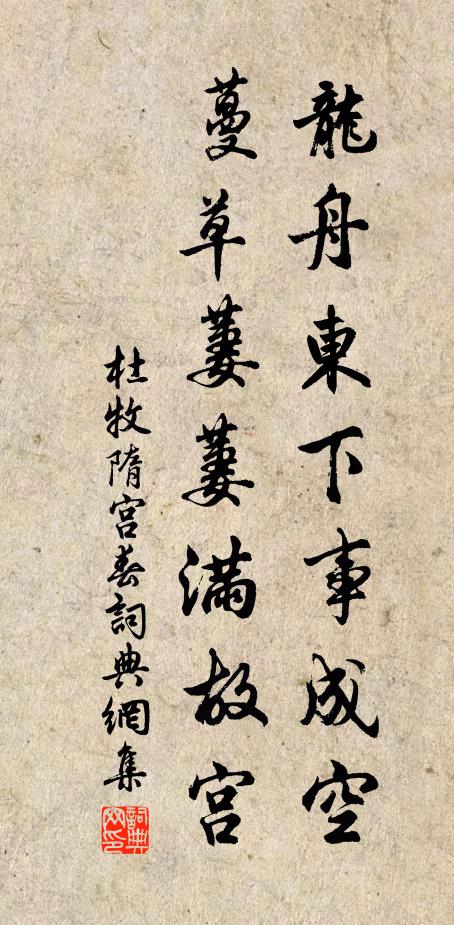 龍舟東下事成空
蔓草萋萋滿故宮
杜牧隋宮春詞典網集
詞典
网印